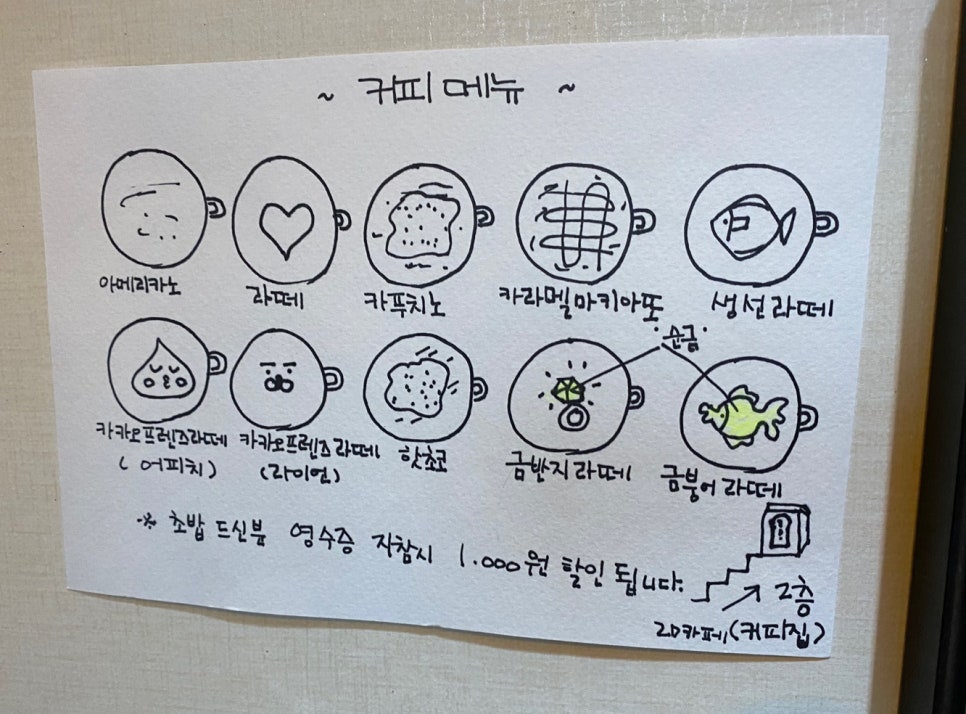 ~ 커피 메뉴 ~
아메리카노
라떼
카푸치노
카라멜마키아또
생선라떼
카카오프렌즈라떼
(어피치)
카카오프렌즈라떼
(라이언)
핫초코
'순금'
금반지라떼
금붕어라떼
※ 초밥 드신분 영수증 지참시 1.000원 할인 됩니다.
2층
2D카페(커피집)